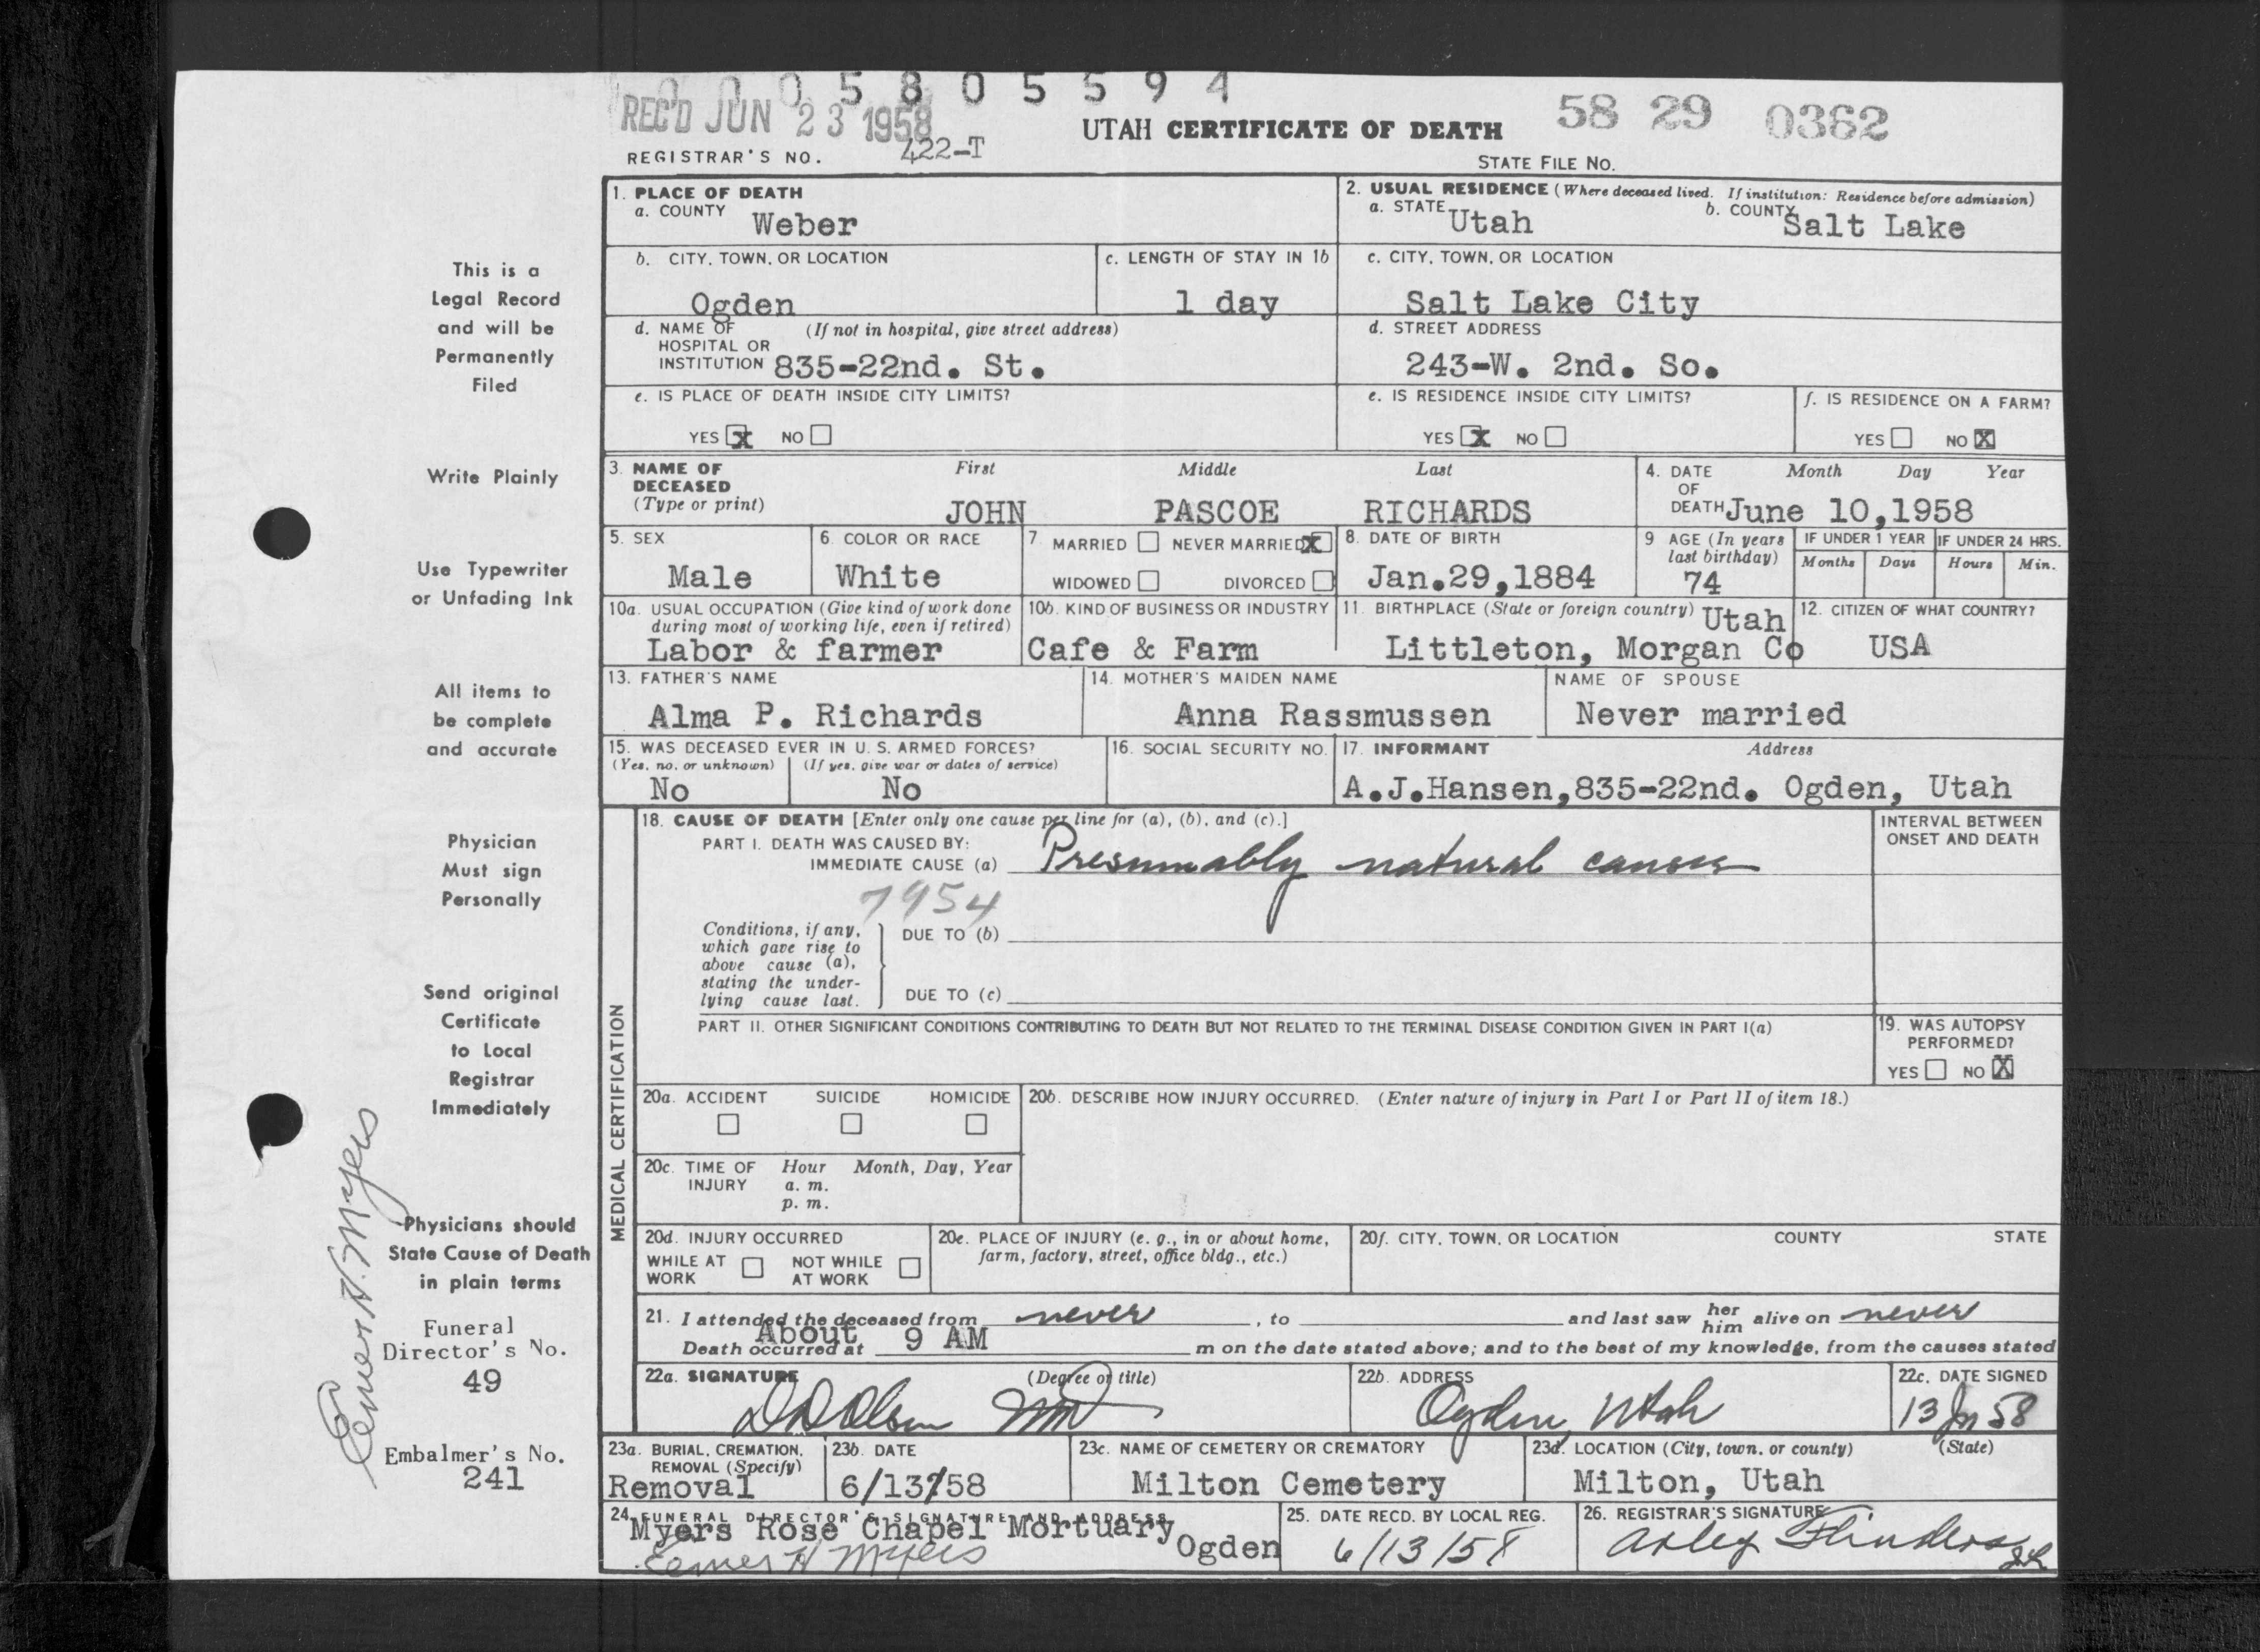 0 0 0 5 8 0 5 5 9 4
REC'D JUN 23 1958
58 29 0362
UTAH CERTIFICATE OF DEATH
REGISTRAR'S NO. 422-T
STATE FILE NO.
1. PLACE OF DEATH
a. COUNTY Weber
2. USUAL RESIDENCE (Where deceased lived. If institution: Residence before admission)
a. STATE Utah b. COUNTY Salt Lake
b. CITY, TOWN, OR LOCATION Ogden
c. LENGTH OF STAY IN 1b 1 day
c. CITY, TOWN, OR LOCATION Salt Lake City
d. NAME OF (If not in hospital, give street address)
HOSPITAL OR
INSTITUTION 835-22nd. St.
d. STREET ADDRESS
243-W. 2nd. So.
e. IS PLACE OF DEATH INSIDE CITY LIMITS?
YES X NO
e. IS RESIDENCE INSIDE CITY LIMITS?
YES X NO
f. IS RESIDENCE ON A FARM?
YES NO X
3. NAME OF DECEASED (Type or print)
First Middle Last
JOHN PASCOE RICHARDS
4. DATE OF DEATH Month Day Year
June 10,1958
5. SEX
Male
6. COLOR OR RACE
White
7. MARRIED NEVER MARRIED X
WIDOWED DIVORCED
8. DATE OF BIRTH
Jan.29,1884
9 AGE (In years last birthday)
74
IF UNDER 1 YEAR
Months Days
IF UNDER 24 HRS.
Hours Min.
10a. USUAL OCCUPATION (Give kind of work done
during most of working life, even if retired)
Labor & farmer
10b. KIND OF BUSINESS OR INDUSTRY
Cafe & Farm
11. BIRTHPLACE (State or foreign country) Utah
Littleton, Morgan Co
12. CITIZEN OF WHAT COUNTRY?
USA
13. FATHER'S NAME
Alma P. Richards
14. MOTHER'S MAIDEN NAME
Anna Rassmussen
NAME OF SPOUSE
Never married
15. WAS DECEASED EVER IN U. S. ARMED FORCES?
(Yes, no, or unknown) (If yes, give war or dates of service)
No No
16. SOCIAL SECURITY NO.
17. INFORMANT Address
A.J.Hansen,835-22nd. Ogden, Utah
MEDICAL CERTIFICATION
18. CAUSE OF DEATH [Enter only one cause per line for (a), (b), and (c).]
INTERVAL BETWEEN
ONSET AND DEATH
PART I. DEATH WAS CAUSED BY:
IMMEDIATE CAUSE (a) Presumably natural causes
7954
Conditions, if any,
which gave rise to
above cause (a),
stating the under-
lying cause last.
DUE TO (b)
DUE TO (c)
PART II. OTHER SIGNIFICANT CONDITIONS CONTRIBUTING TO DEATH BUT NOT RELATED TO THE TERMINAL DISEASE CONDITION GIVEN IN PART I(a)
19. WAS AUTOPSY
PERFORMED?
YES NO X
20a. ACCIDENT SUICIDE HOMICIDE
20b. DESCRIBE HOW INJURY OCCURRED. (Enter nature of injury in Part I or Part II of item 18.)
20c. TIME OF INJURY Hour Month, Day, Year
a. m.
p. m.
20d. INJURY OCCURRED
WHILE AT WORK NOT WHILE AT WORK
20e. PLACE OF INJURY (e. g., in or about home,
farm, factory, street, office bldg., etc.)
20f. CITY, TOWN, OR LOCATION COUNTY STATE
21. I attended the deceased from never , to and last saw her him alive on never
Death occurred at About 9 AM m on the date stated above; and to the best of my knowledge, from the causes stated
22a. SIGNATURE (Degree or title)
D D Olsen MD
22b. ADDRESS
Ogden, Utah
22c. DATE SIGNED
13 Jn 58
23a. BURIAL, CREMATION,
REMOVAL (Specify)
Removal
23b. DATE
6/13/58
23c. NAME OF CEMETERY OR CREMATORY
Milton Cemetery
23d. LOCATION (City, town, or county) (State)
Milton, Utah
24. FUNERAL DIRECTOR'S SIGNATURE AND ADDRESS
Myers Rose Chapel Mortuary Ogden
Elmer H Myers
25. DATE RECD. BY LOCAL REG.
6/13/58
26. REGISTRAR'S SIGNATURE
Arley Flinders
This is a
Legal Record
and will be
Permanently
Filed
Write Plainly
Use Typewriter
or Unfading Ink
All items to
be complete
and accurate
Physician
Must sign
Personally
Send original
Certificate
to Local
Registrar
Immediately
Physicians should
State Cause of Death
in plain terms
Funeral
Director's No.
49
Embalmer's No.
241
Elmer H. Myers